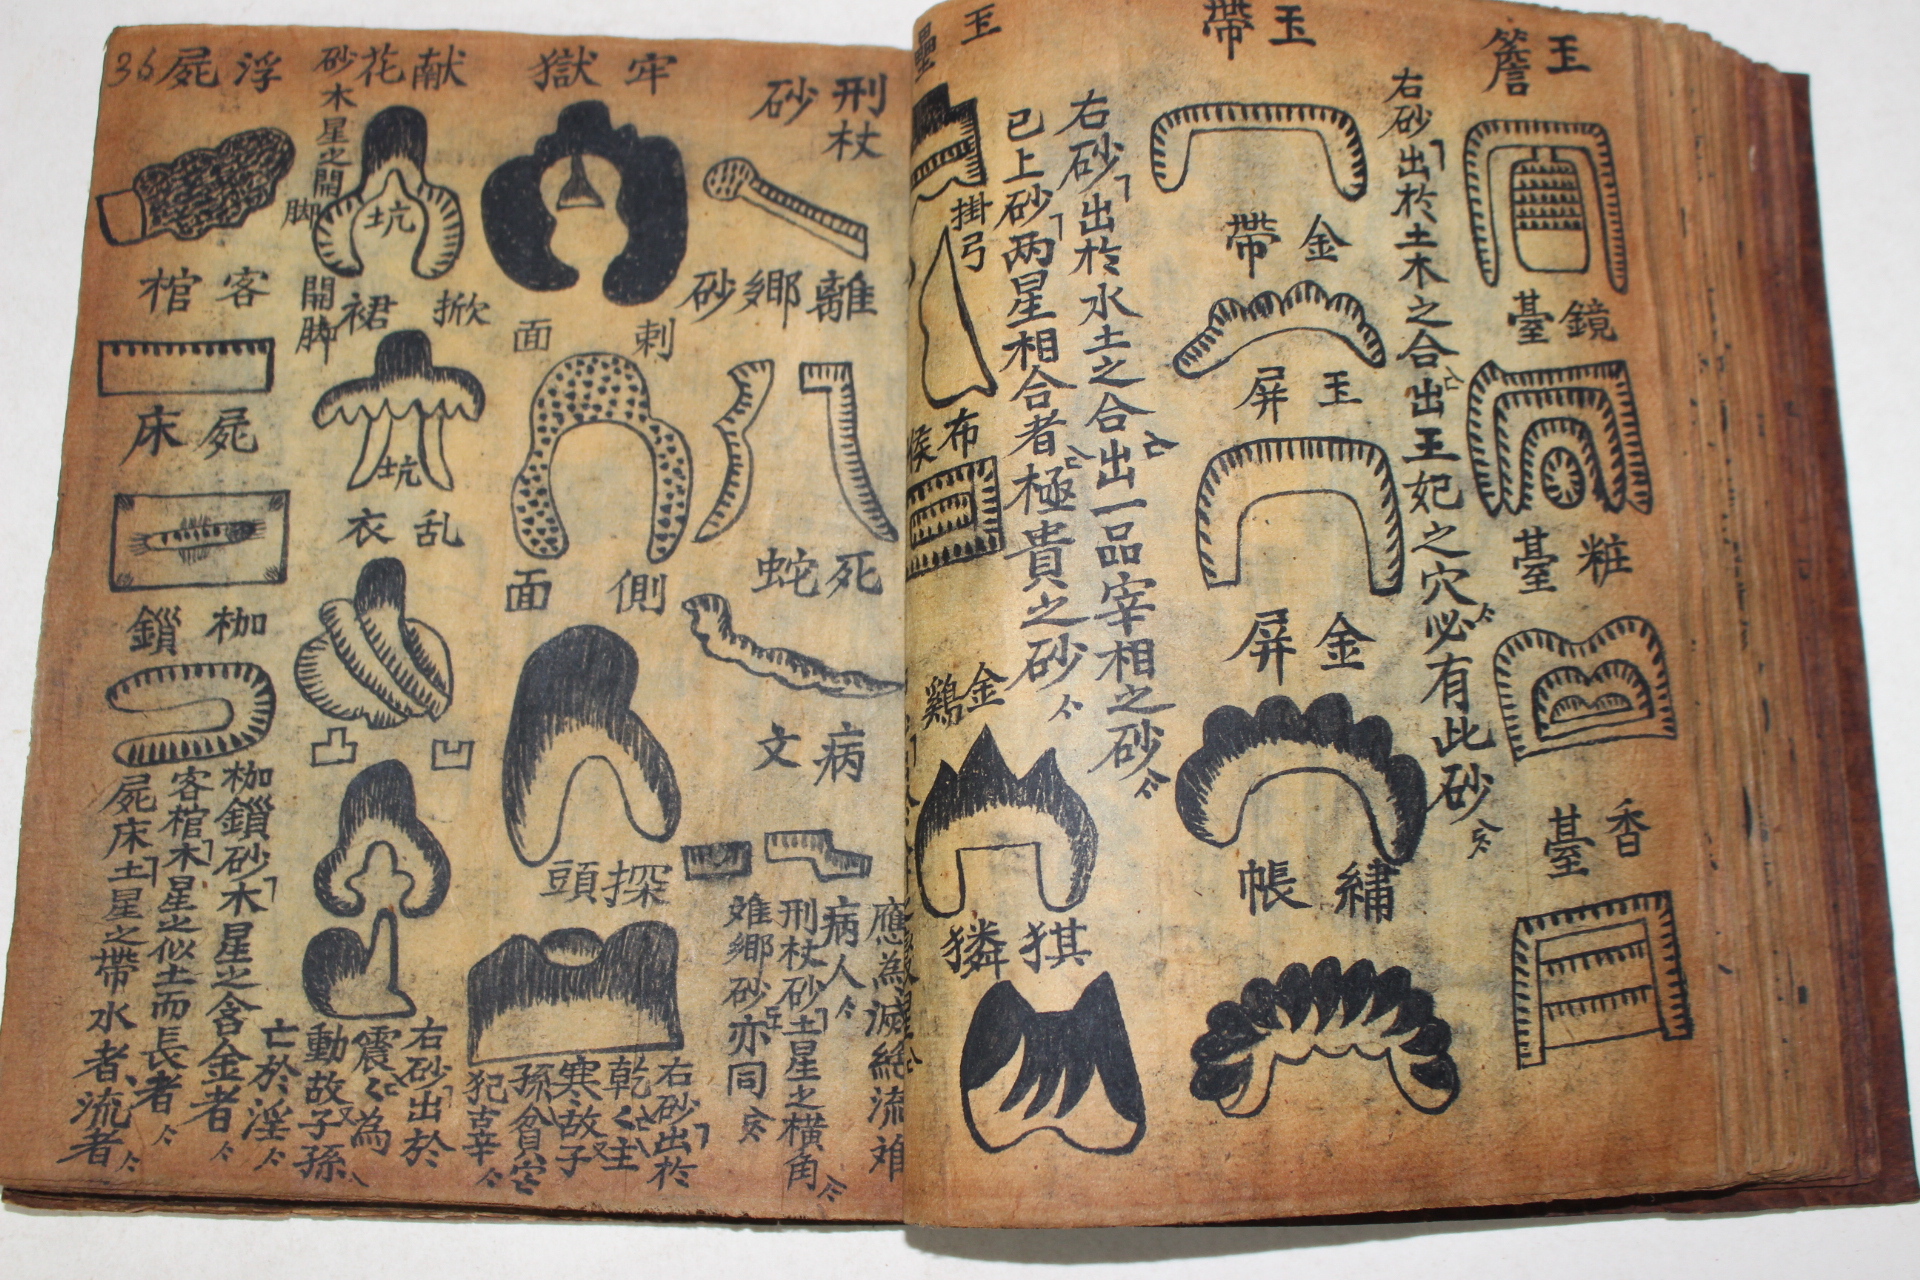 玉簷
右砂出於土木之合出王妃之穴必有此砂
鏡臺
粧臺
香臺
玉帶
金帶
玉屏
金屏
繡帳
右砂出於水土之合出一品宰相之砂
已上砂两星相合者極貴之砂
玉
掛弓
布
金鷄
猉獜
刑杖砂
離鄉砂
死蛇
病文
應為滅絕流
病人
刑杖砂土星之橫角
鄉砂亦同
牢獄
刺面
側面
探頭
右砂出於
乾
寒故子
孫貧
犯
献花砂
木星之開脚
坑
掀裙
開脚
坑
乱衣
凹凸
右砂出於
震
為
動故子孫
亡於淫
浮屍
36
客棺
屍床
枷鎖
枷鎖砂木星之含金者
客棺木星之似土而長者
屍床土星之帶水者流者